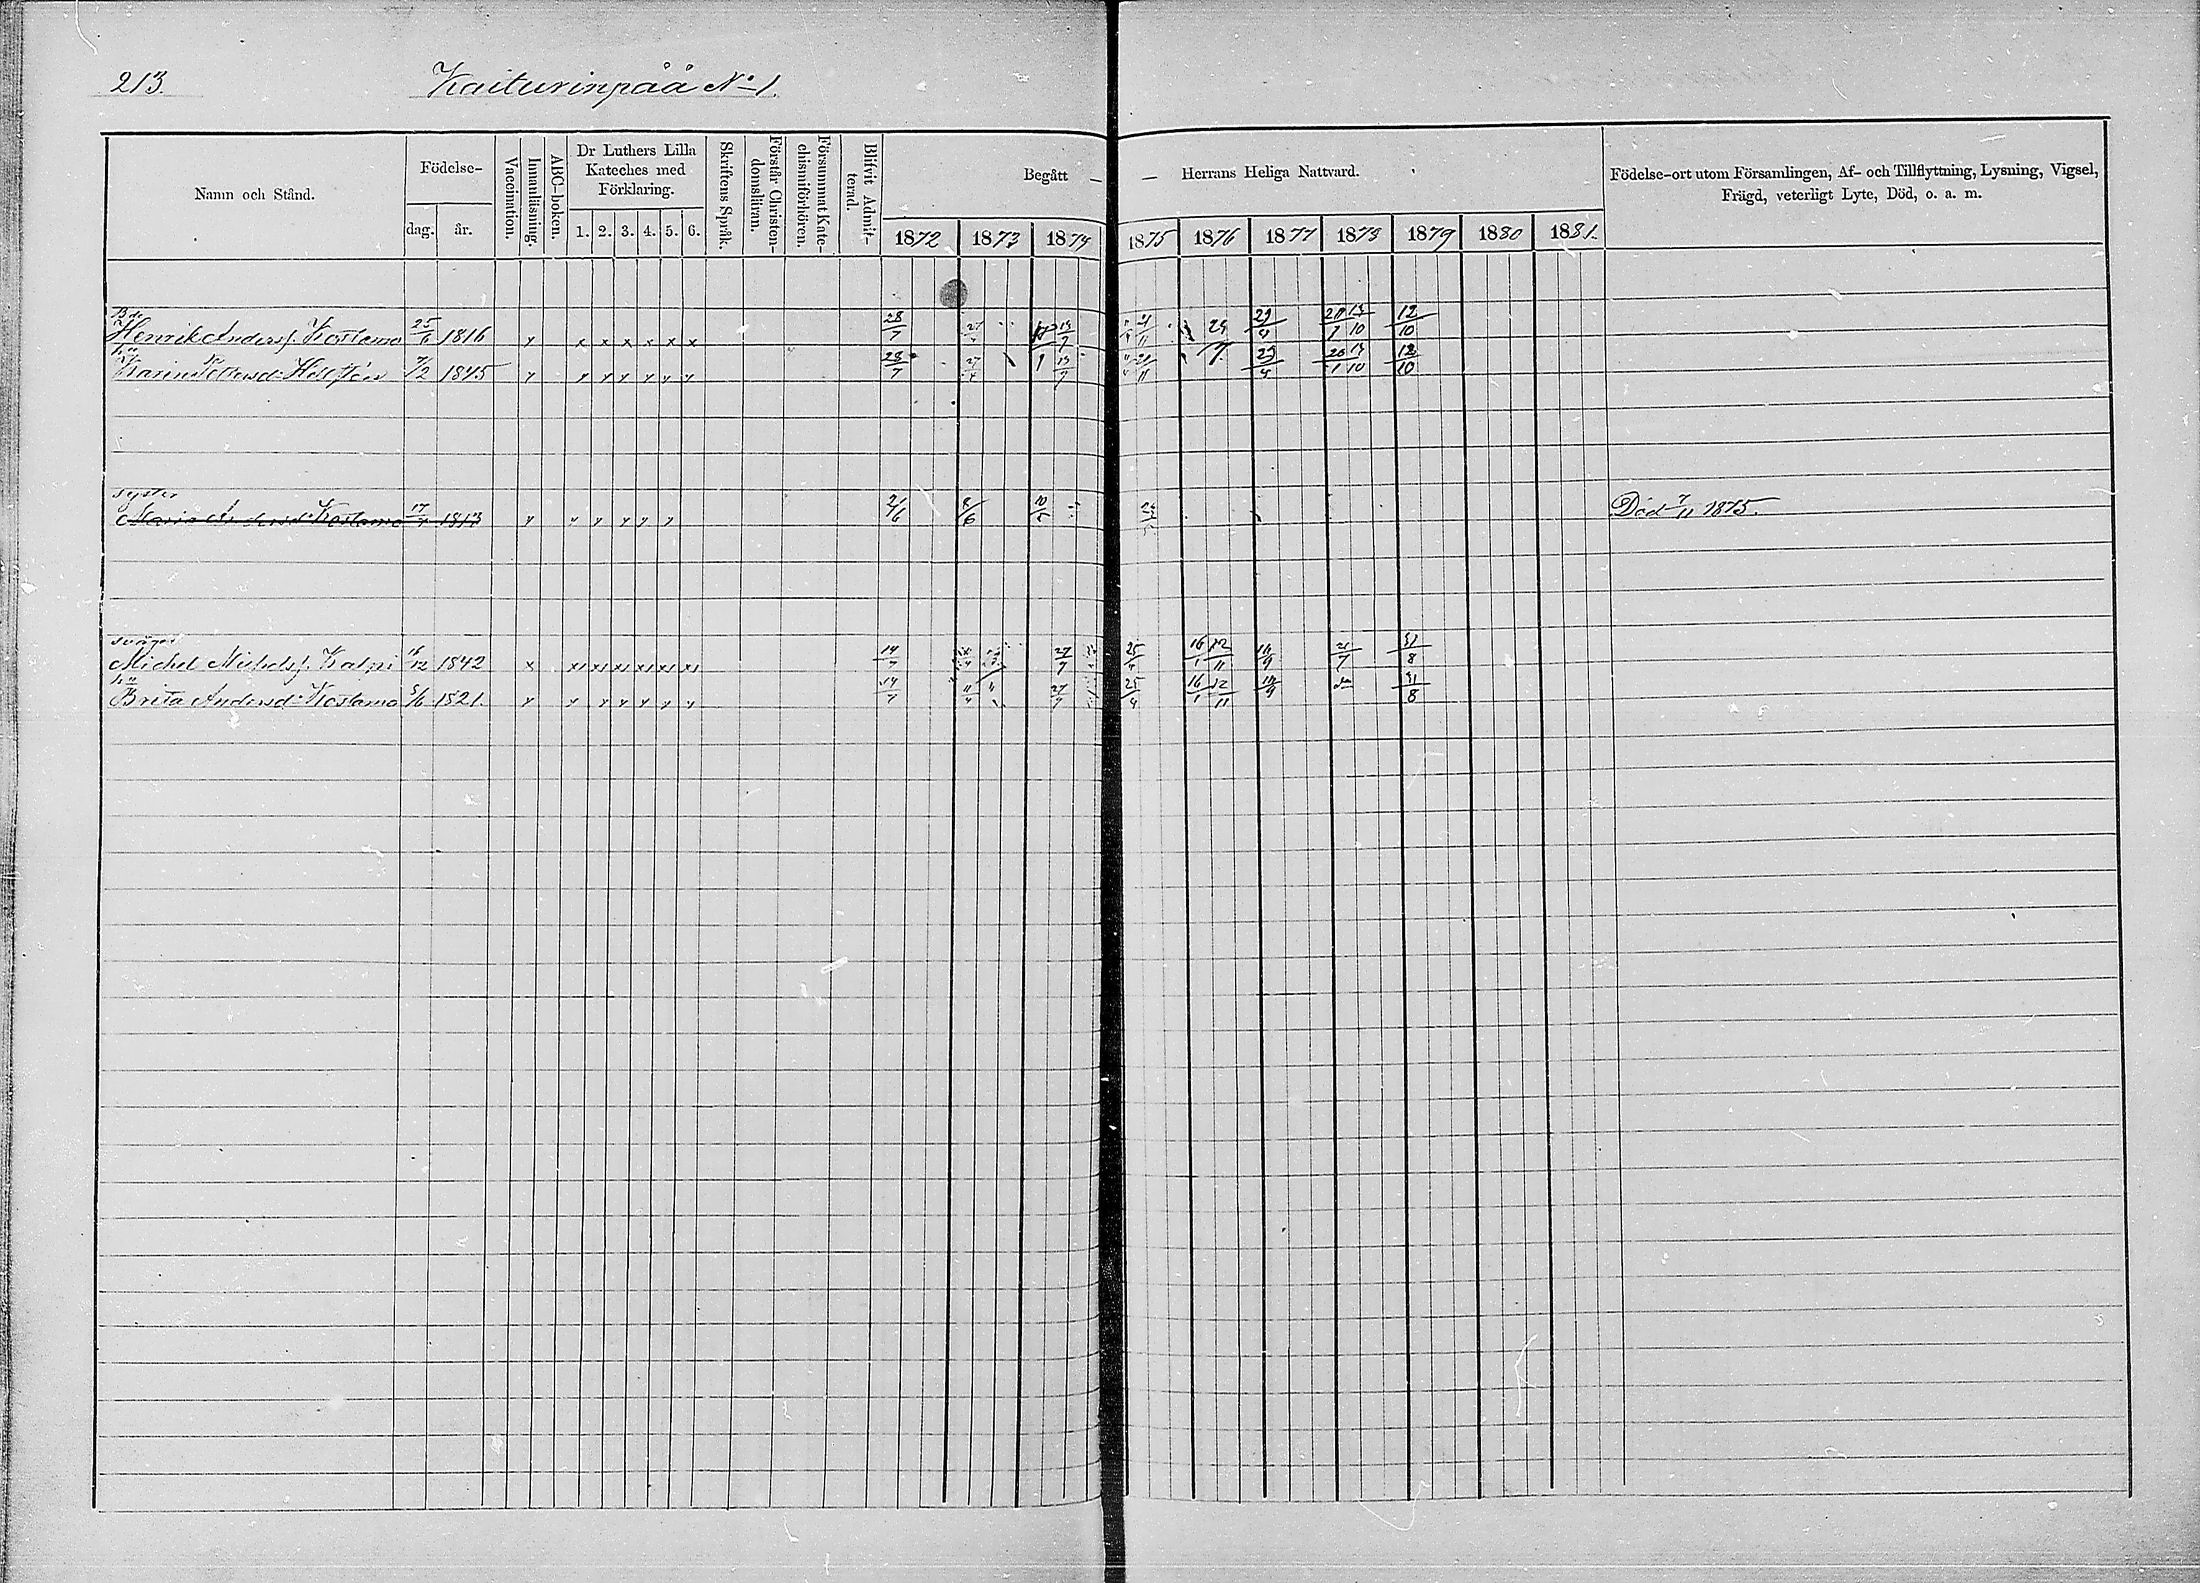 213.
Kaiturinpää No 1.
Namn och Stånd.
Födelse-
dag. år.
Vaccination.
Innanläsning.
ABC-boken.
Dr Luthers Lilla
Kateches med
Förklaring.
1. 2. 3. 4. 5. 6.
Skriftens Språk.
Förstår Christen-
domsläran.
Försummat Kate-
chismiförhören.
Blifvit Admit-
terad.
Begått — — Herrans Heliga Nattvard.
1872 1873 1874 1875 1876 1877 1878 1879 1880 1881.
Födelse-ort utom Församlingen, Af- och Tillflyttning, Lysning, Vigsel,
Frägd, veterligt Lyte, Död, o. a. m.
Henrik Anders s. Kostamo 25/6 1816 28/7 29/4 12/10
h:u
Karin 7/2 1845 28/7 29/4 12/10
syster
Maria Andersd: Kostamo 1813 Död 7/11 1875.
svåger
Michel Michels s. Kalpi 16/12 1842 14/7 27/9 25/4 16/1 12/11 31/8
h:u
Brita Andersd: Kostamo 5/6 1821. 14/7 27/9 25/4 16/1 12/11 31/8